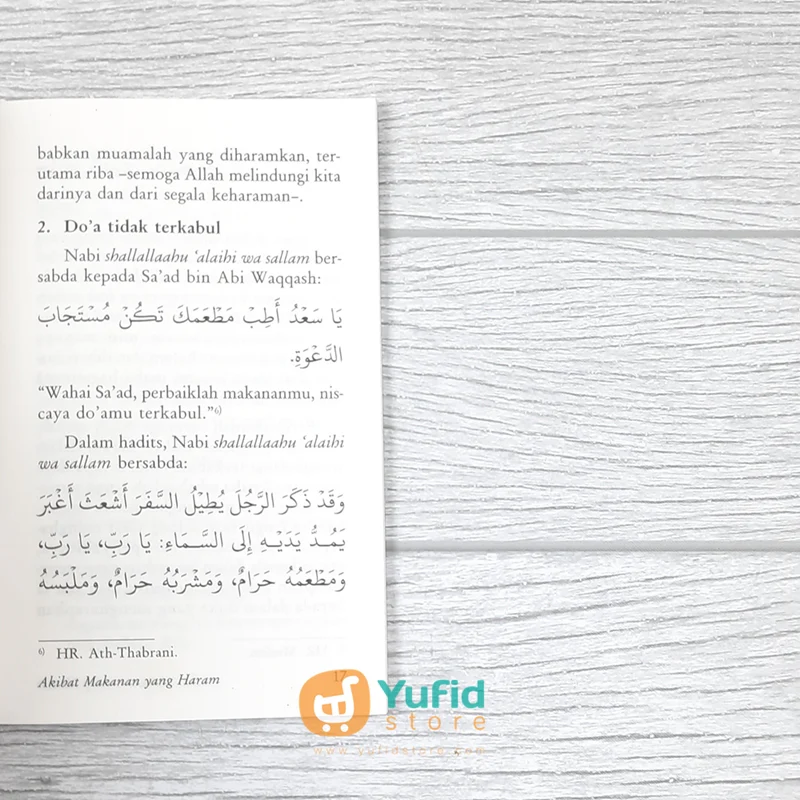 babkan muamalah yang diharamkan, ter-
utama riba –semoga Allah melindungi kita
darinya dan dari segala keharaman–.
2. Do'a tidak terkabul
Nabi shallallaahu 'alaihi wa sallam ber-
sabda kepada Sa'ad bin Abi Waqqash:
يَا سَعْدُ أَطِبْ مَطْعَمَكَ تَكُنْ مُسْتَجَابَ
الدَّعْوَةِ.
"Wahai Sa'ad, perbaiklah makananmu, nis-
caya do'amu terkabul."6)
Dalam hadits, Nabi shallallaahu 'alaihi
wa sallam bersabda:
وَقَدْ ذَكَرَ الرَّجُلَ يُطِيْلُ السَّفَرَ أَشْعَثَ أَغْبَرَ
يَمُدُّ يَدَيْهِ إِلَى السَّمَاءِ: يَا رَبِّ، يَا رَبِّ،
وَمَطْعَمُهُ حَرَامٌ، وَمَشْرَبُهُ حَرَامٌ، وَمَلْبَسُهُ
6) HR. Ath-Thabrani.
Akibat Makanan yang Haram 17
Yufid
store
www.yufidstore.com